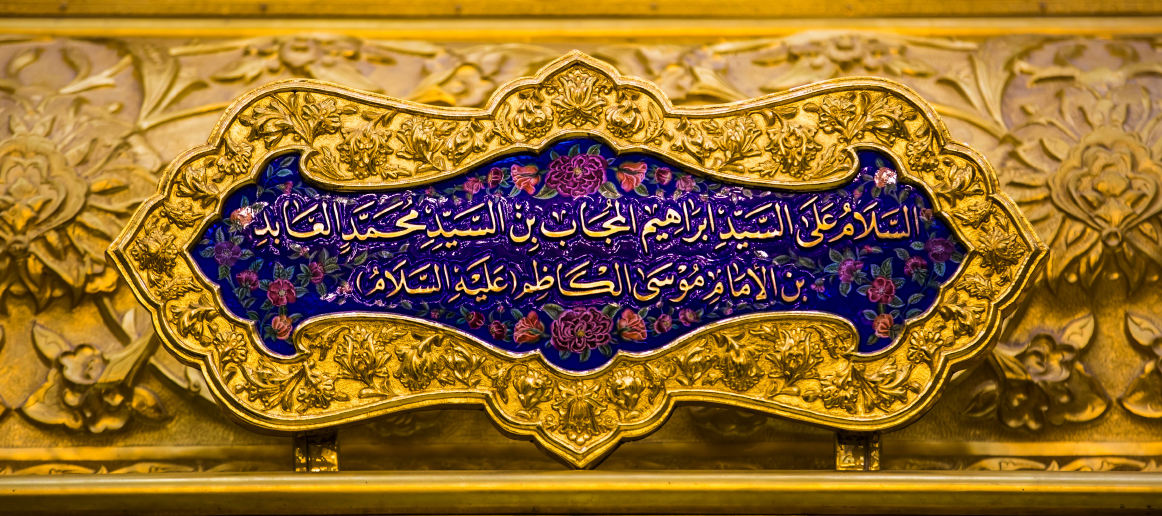 السَّلَامُ عَلَى السَّيِّدِ ابْرَاهِيم المُجَاب بِن السَّيِّدِ مُحَمَّدِ العَابدِ
بن الامَامِ مُوْسَى الكَاظِم (عَلَيْهِ السَّلَامُ)